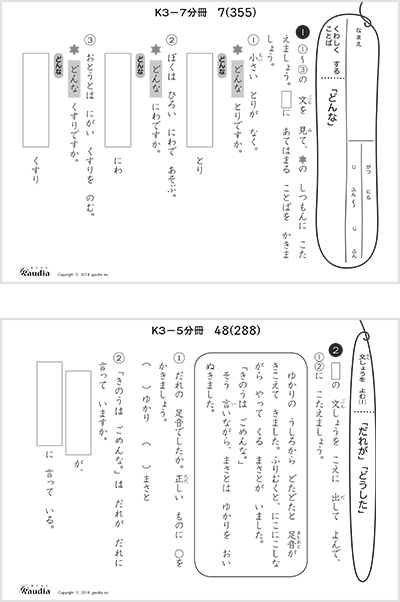 K3－7分冊　7(355)
なまえ
がつ　にち
じ　ふん～　じ　ふん
くわしく　する
ことば
「どんな」
❶ ①～③の　文を　見て、✶の　しつもんに　こた
えましょう。□に　あてはまる　ことばを　かきま
しょう。
① 小さい　とりが　なく。
どんな
✶どんな　とりですか。
とり
② ぼくは　ひろい　にわで　あそぶ。
どんな
✶どんな　にわですか。
にわ
③ おとうとは　にがい　くすりを　のむ。
どんな
✶どんな　くすりですか。
くすり
gaudia
Copyright ⓒ 2018 gaudia inc.
K3－5分冊　48(288)
文しょうを　よむ(1)
「だれが」「どうした」
❷ □の　文しょうを　こえに　出して　よんで、
①②に　こたえましょう。
ゆかりの　うしろから　どたどたと　足音が
きこえて　きました。ふりむくと、にこにこしな
がら　やって　くる　まさとが　いました。
「きのうは　ごめんな。」
そう　言いながら、まさとは　ゆかりを　おい
ぬきました。
① だれの　足音でしたか。正しい　ものに　○を
かきましょう。
（　）ゆかり　（　）まさと
② 「きのうは　ごめんな。」は　だれが　だれに
言って　いますか。
が、
に　言って　いる。
gaudia
Copyright ⓒ 2018 gaudia inc.